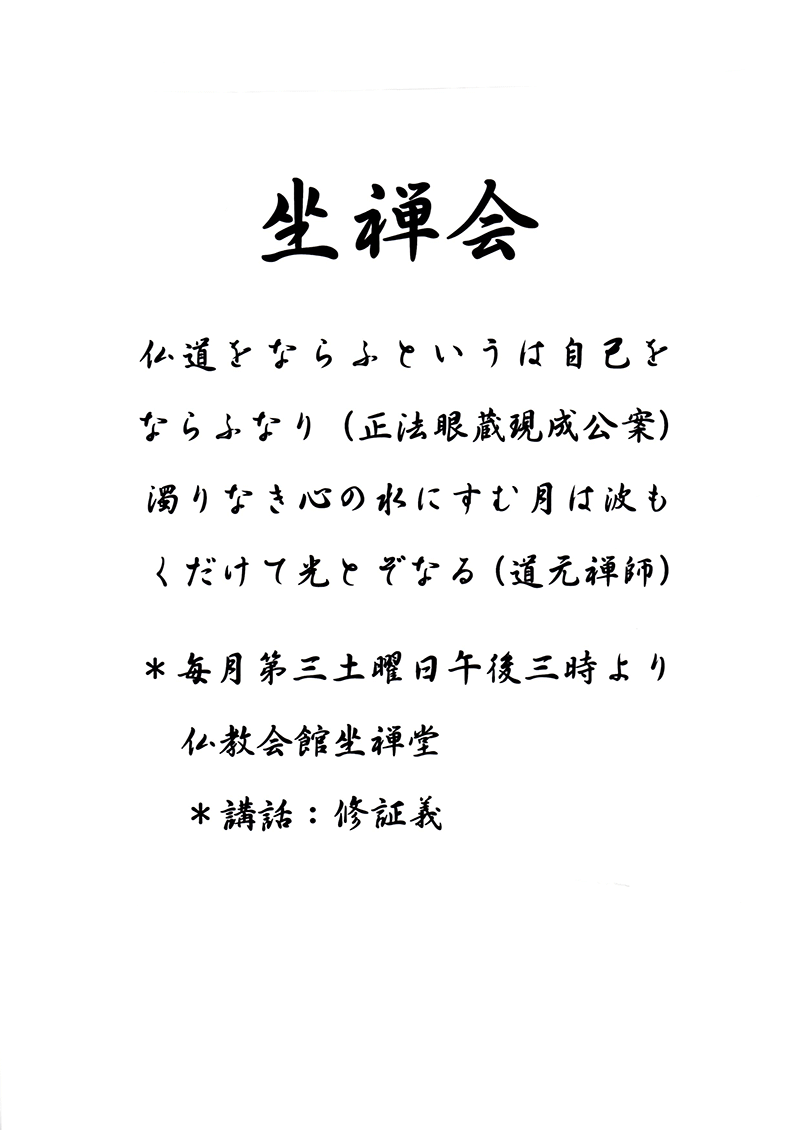 坐禅会
仏道をならふというは自己を
ならふなり（正法眼蔵現成公案）
濁りなき心の水にすむ月は波も
くだけて光とぞなる（道元禅師）
＊毎月第三土曜日午後三時より
仏教会館坐禅堂
＊講話：修証義